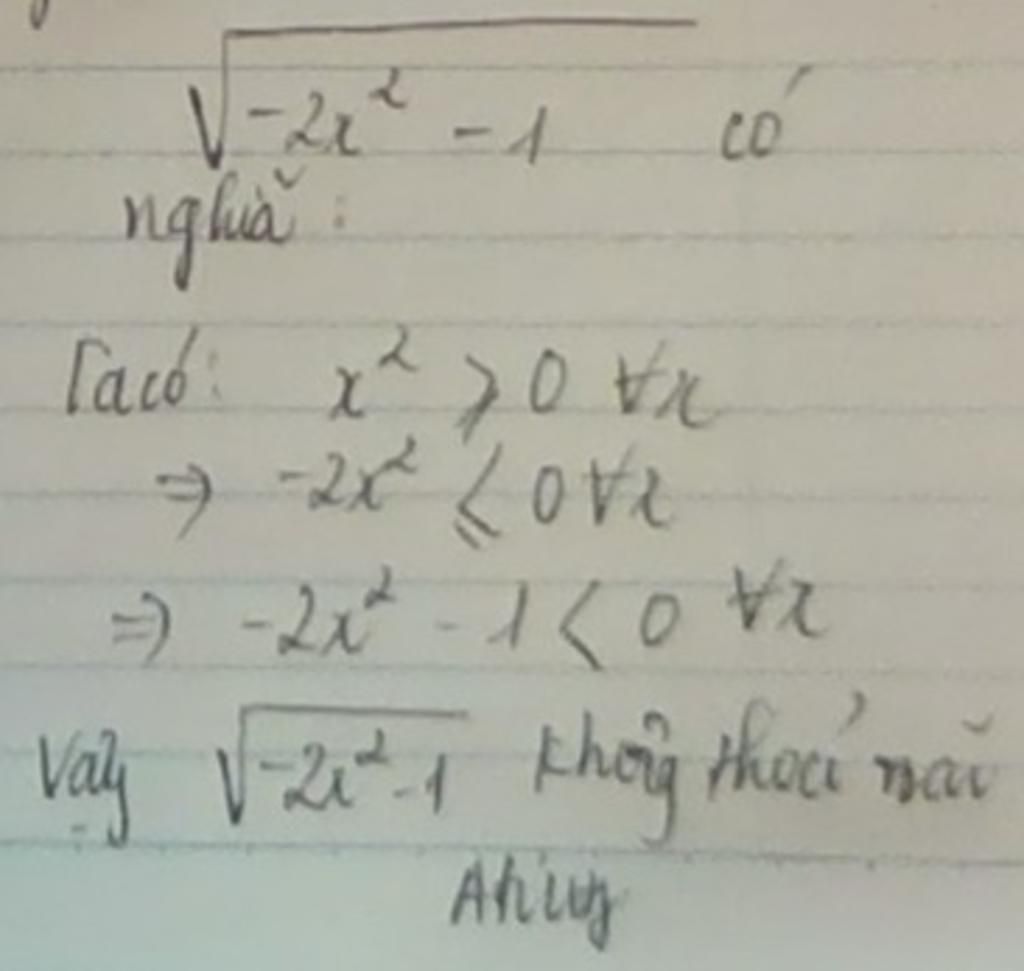 √(-2x² - 1) có
nghĩa :
Ta có: x² ⩾ 0 ∀x
=> -2x² ⩽ 0 ∀x
=> -2x² - 1 < 0 ∀x
Vậy √(-2x² - 1) không thoả mãn